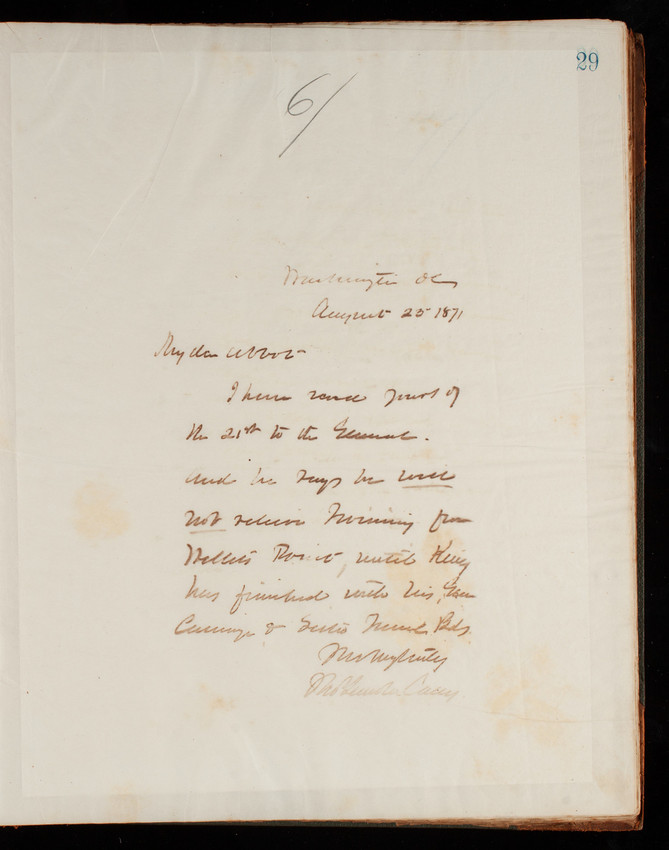 29
6/
Washington DC
August 25 1871
My dear Abbot
I have read yours of
the 21st to the General.
And he says he will
not relieve Twining from
Willets Point, until King
has finished with his Gun
Carriage &
Very truly
Thos Lincoln Casey